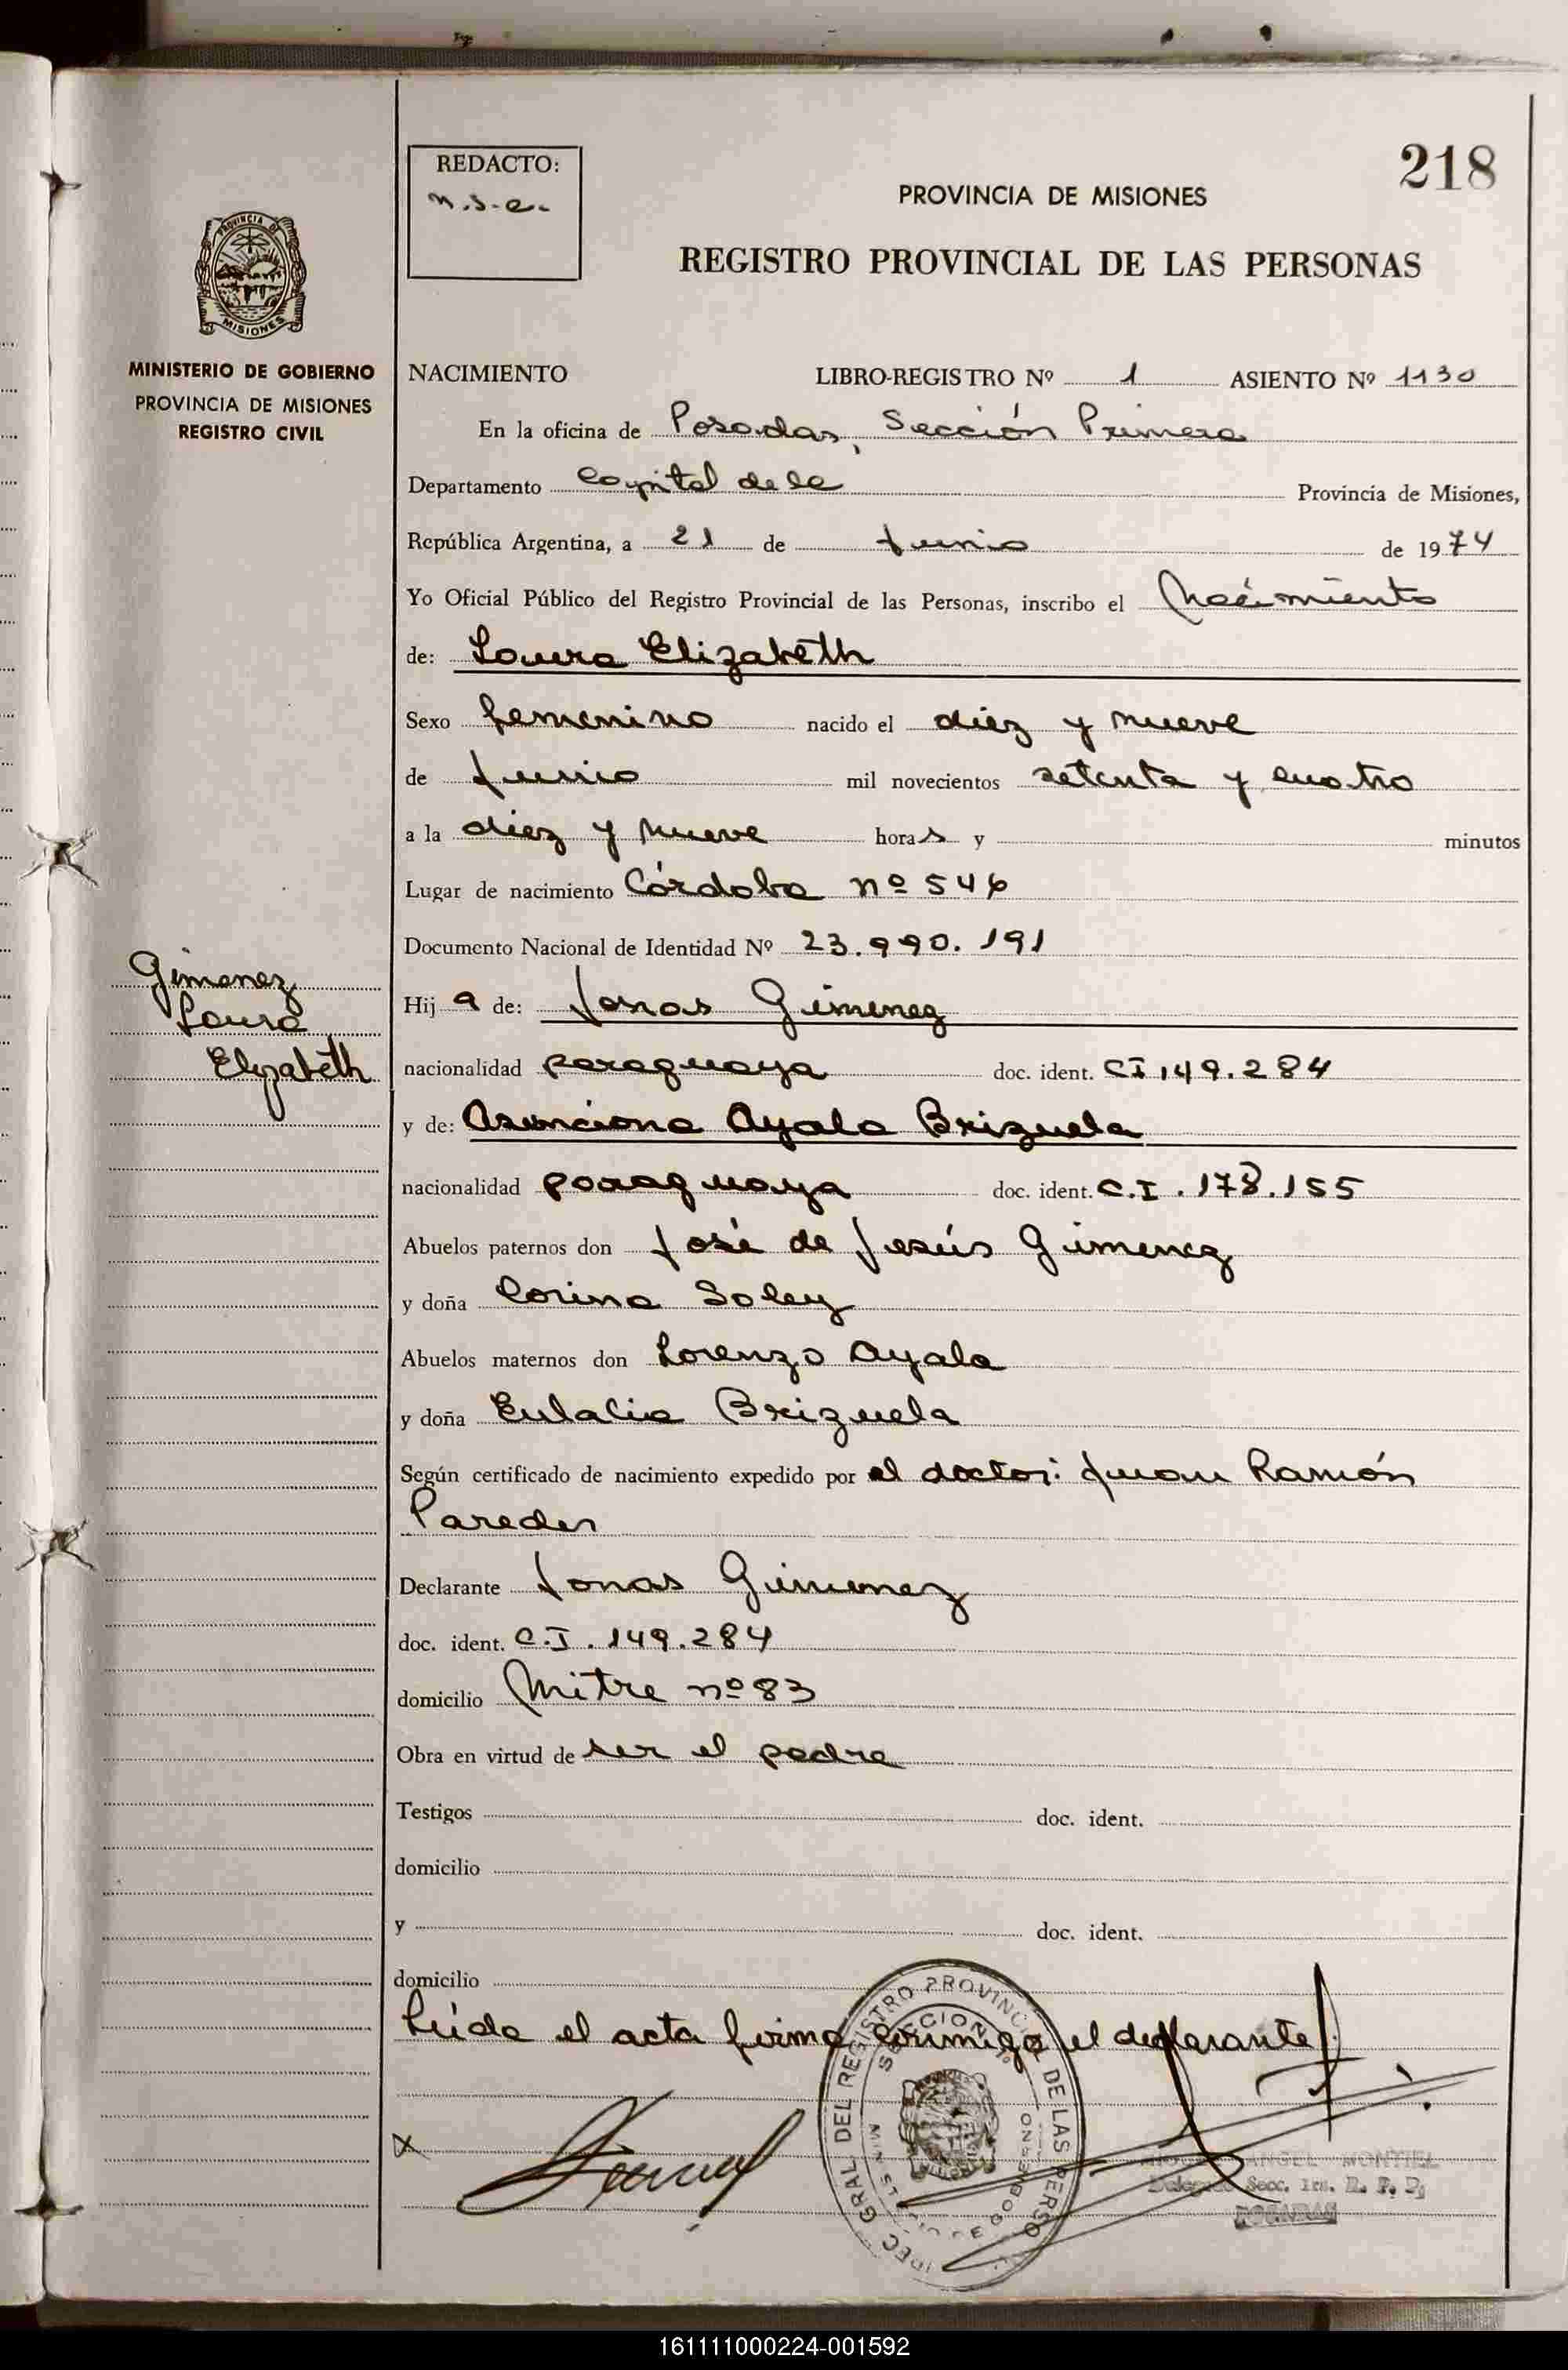 218
REDACTO:
n.s.e.
PROVINCIA DE MISIONES
REGISTRO PROVINCIAL DE LAS PERSONAS
MINISTERIO DE GOBIERNO
PROVINCIA DE MISIONES
REGISTRO CIVIL
NACIMIENTO LIBRO-REGISTRO Nº 1 ASIENTO Nº 1130
En la oficina de Posadas, Sección Primera
Departamento Capital de la Provincia de Misiones,
República Argentina, a 21 de Junio de 1974
Yo Oficial Público del Registro Provincial de las Personas, inscribo el Nacimiento
de: Laura Elizabeth
Sexo femenino nacido el diez y nueve
de Junio mil novecientos setenta y cuatro
a la diez y nueve horas y minutos
Lugar de nacimiento Córdoba nº 546
Documento Nacional de Identidad Nº 23.990.191
Gimenez
Laura
Elizabeth
Hij a de: Jonas Gimenez
nacionalidad paraguaya doc. ident. CI 149.284
y de: Asunciona Ayala Brizuela
nacionalidad paraguaya doc. ident. C.I. 178.155
Abuelos paternos don José de Jesús Gimenez
y doña Corina Soley
Abuelos maternos don Lorenzo Ayala
y doña Eulalia Brizuela
Según certificado de nacimiento expedido por el doctor: Juan Ramón
Paredes
Declarante Jonas Gimenez
doc. ident. C.I. 149.284
domicilio Mitre nº 83
Obra en virtud de ser el padre
Testigos doc. ident.
domicilio
y doc. ident.
domicilio
Leída el acta firma conmigo el declarante
x
GRAL. DEL REGISTRO PROVINCIAL DE LAS PERSO
SECCION
ANGEL MONTIEL
Delegado Secc. 1ra. R. P. P.
POSADAS
161111000224-001592